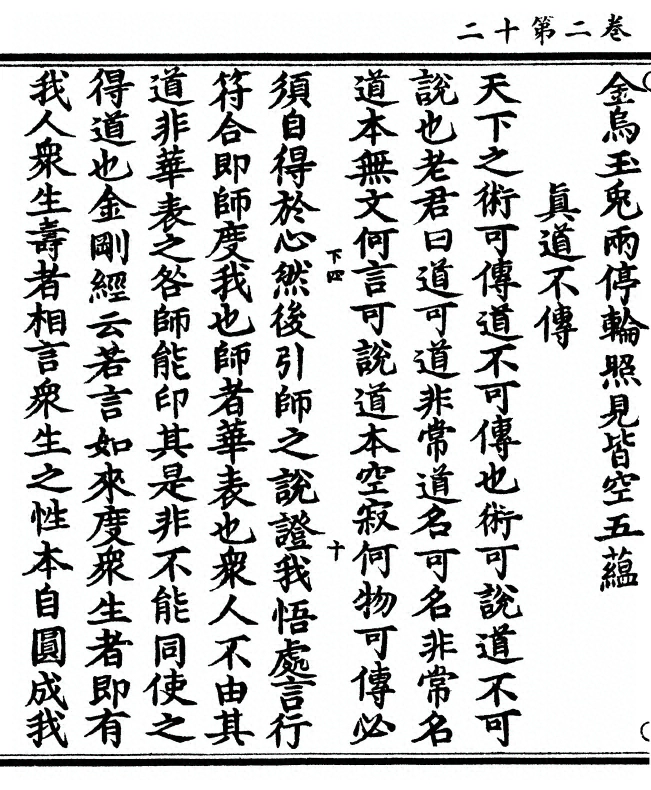 卷二第十二
金烏玉兔兩停輪照見皆空五蘊
眞道不傳
天下之術可傳道不可傳也術可說道不可
說也老君曰道可道非常道名可名非常名
道本無文何言可說道本空寂何物可傳必
下四
十
須自得於心然後引師之說證我悟處言行
符合即師度我也師者華表也衆人不由其
道非華表之咎師能印其是非不能同使之
得道也金剛經云若言如來度衆生者即有
我人衆生壽者相言衆生之性本自圓成我